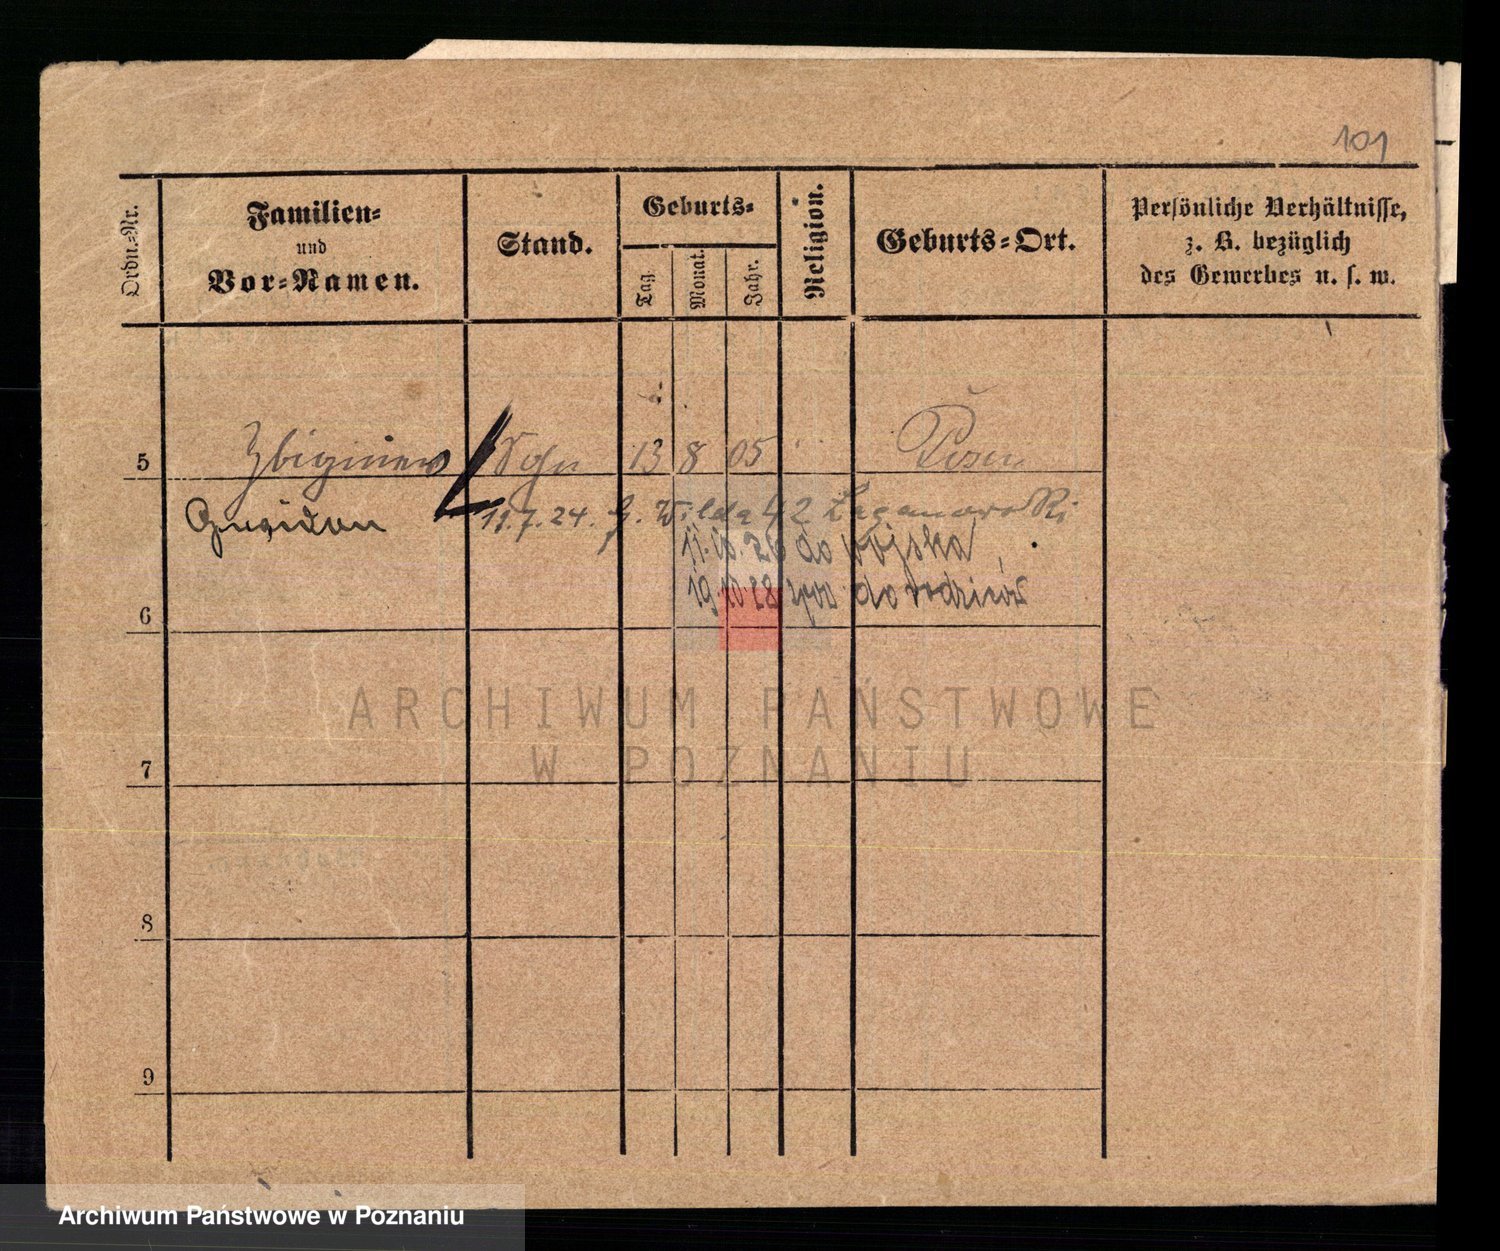 101
Ordn.-Nr.
Familien-
und
Vor-Namen.
Stand.
Geburts-
Tag.
Monat.
Jahr.
Religion.
Geburts-Ort.
Persönliche Verhältnisse,
z. B. bezüglich
des Gewerbes u. s. w.
5 Zbigniew Sohn 13 8 05 Posen
11.7.24. G. Wilda 42
11.10.26 do wojska
19.10.28 do rodziców
6
ARCHIWUM PAŃSTWOWE
W POZNANIU
7
8
9
Archiwum Państwowe w Poznaniu